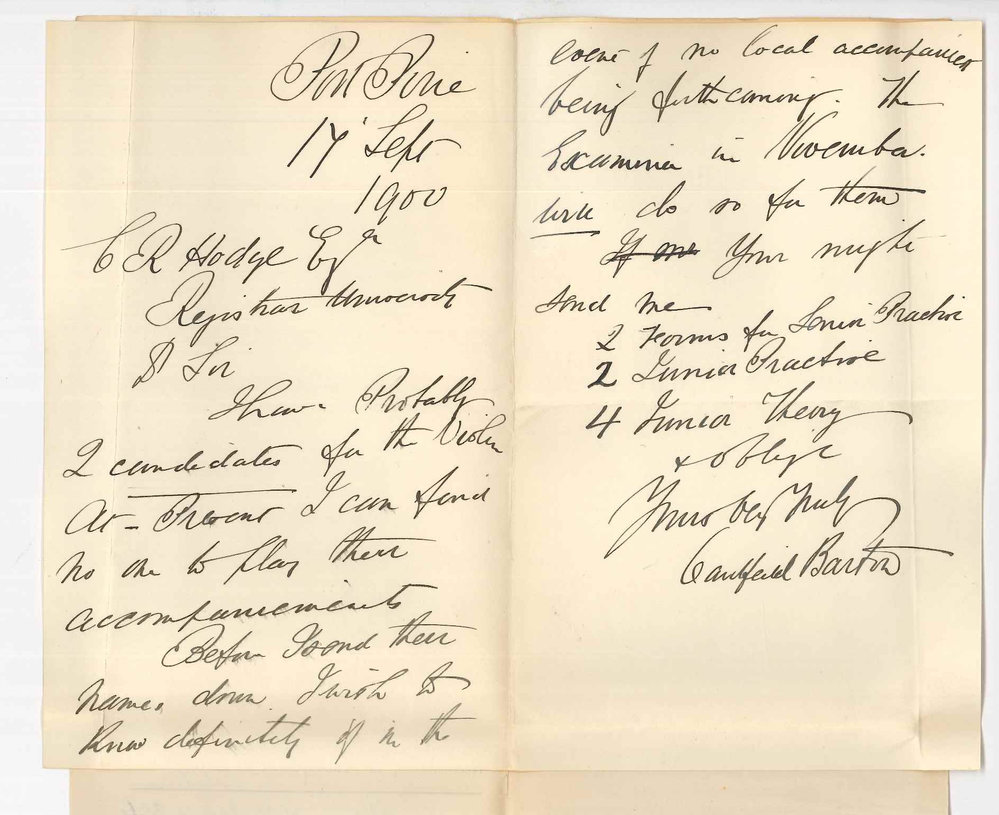 Port Pirie
17 Sept
1900
C R Hodge Esqr
Registrar University
D Sir
I have Probably
2 candidates for the Violin
At - Present I can find
no one to play their
accompaniments
Before I send their
names down. I wish to
know definitely if in the
event of no local accompanist
being forthcoming. The
Examiner in November.
will do so for them
If me You might
send me
2 Forms for Senior Practice
2 Junior Practice
4 Junior Theory
& oblige
Yours very Truly
Caulfeild Barton